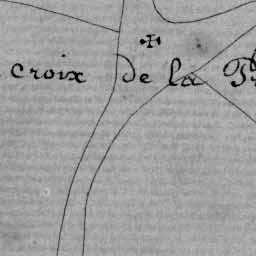 croix de la